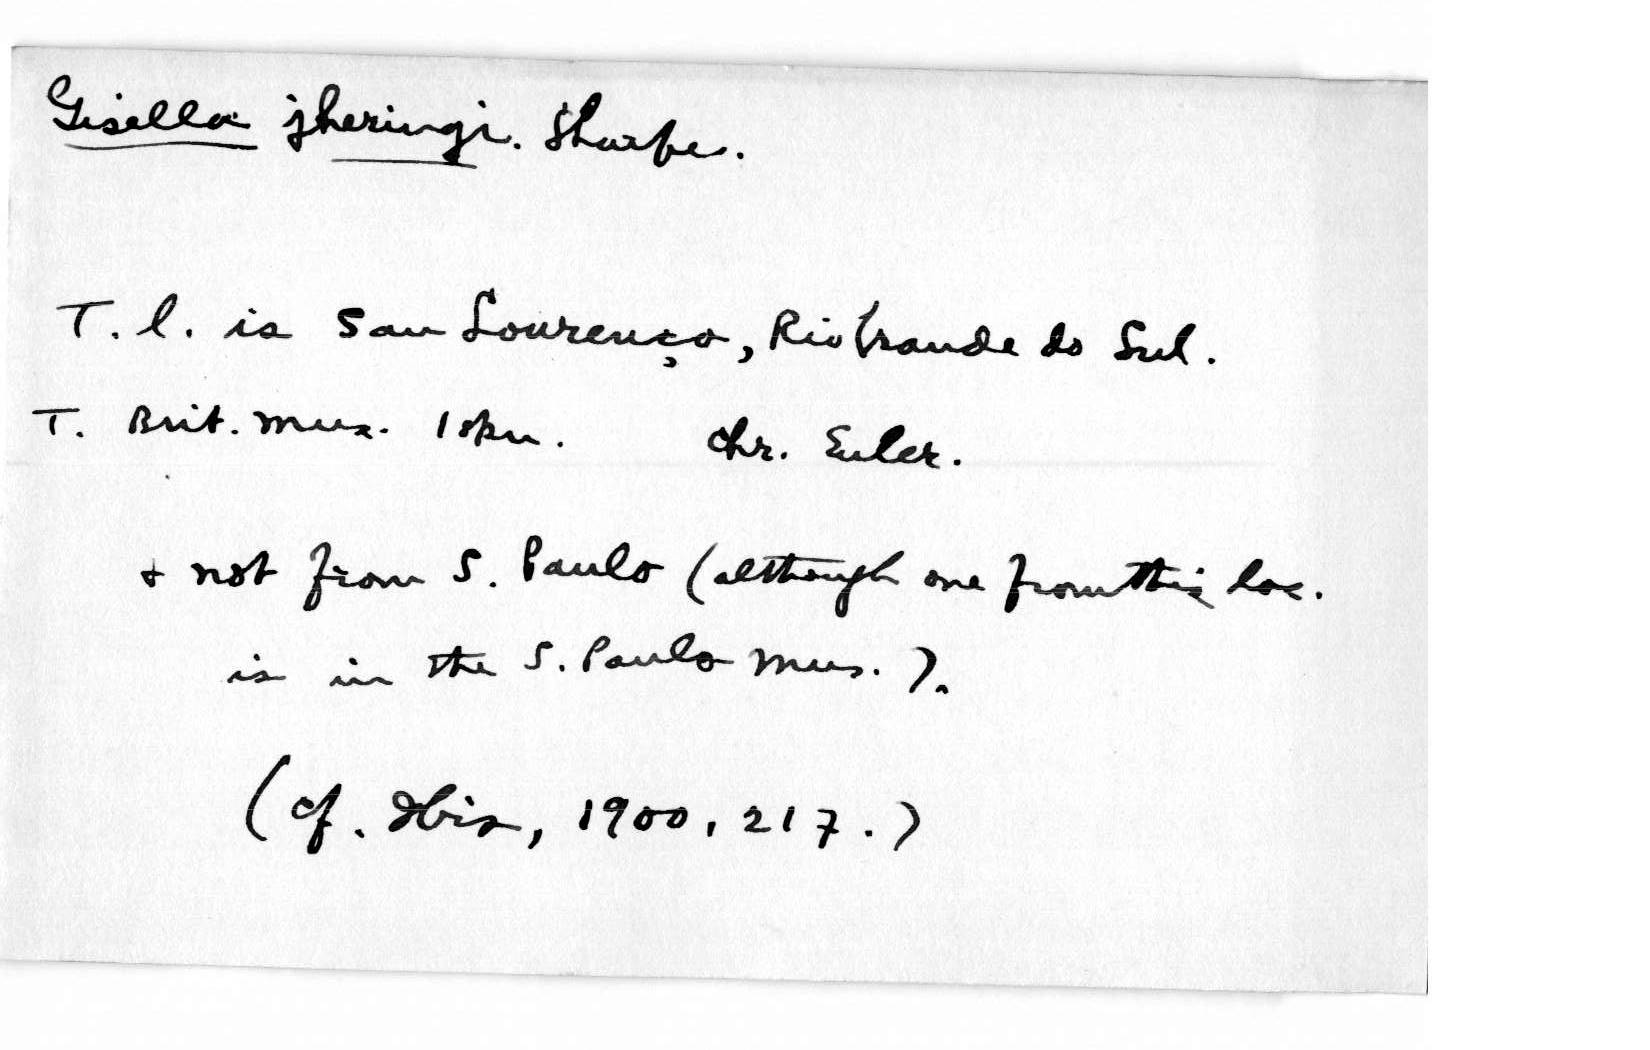 Gisella jheringi. Sharpe.
T. l. is San Lourenço, Rio Grande do Sul.
T. Brit. Mus. 1 skn. Chr. Euler.
& not from S. Paulo (although one from this loc.
is in the S. Paulo Mus.).
(cf. Ibis, 1900, 217.)